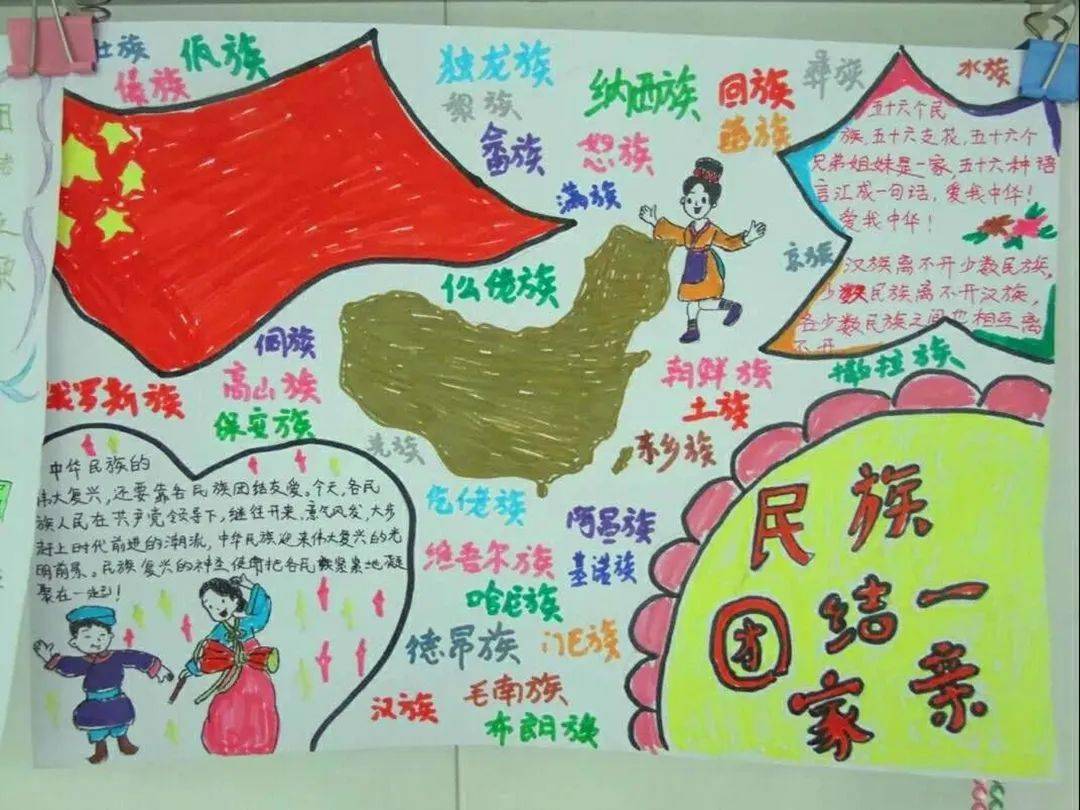 壮族
佤族
傣族
独龙族
黎族
纳西族
回族
彝族
水族
畲族
怒族
满族
京族
仫佬族
侗族
高山族
保安族
俄罗斯族
羌族
朝鲜族
土族
东乡族
撒拉族
五十六个民
族,五十六支花,五十六个
兄弟姐妹是一家,五十六种语
言汇成一句话,爱我中华!
爱我中华!
汉族离不开少数民族,
少数民族离不开汉族,
各少数民族之间也相互离
不开
中华民族的
伟大复兴,还要靠各民族团结友爱。今天,各民
族人民在共产党领导下,继往开来,意气风发,大步
赶上时代前进的潮流,中华民族迎来伟大复兴的光
明前景。民族复兴的神圣使命把各民族紧紧地凝
聚在一起!
仡佬族
阿昌族
维吾尔族
基诺族
哈尼族
德昂族
门巴族
毛南族
汉族
布朗族
民族
团结一
家亲